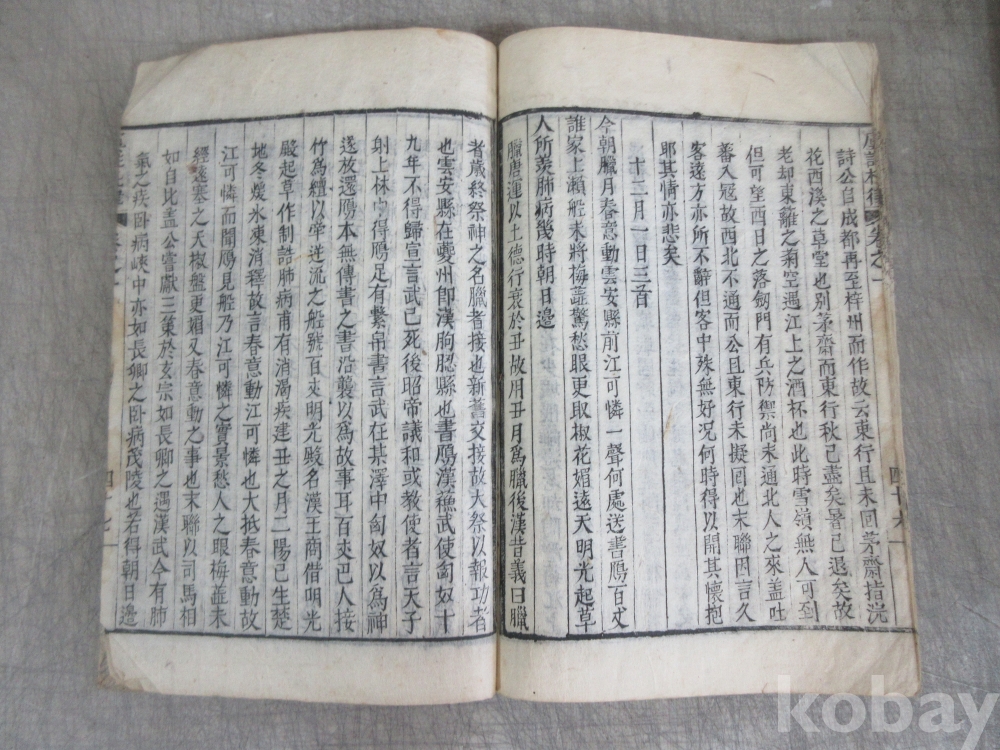 虞註杜律 卷之一
詩公自成都再至梓州而作故云東行且未回茅齋指浣
花西溪之草堂也別茅齋而東行秋已盡矣暑已退矣故
老却東籬之菊空遇江上之酒杯也此時雪嶺無人可到
但可望西日之落劒門有兵防禦尚未通北人之來盖吐
蕃入冦故西北不通而公且東行未擬囘也末聯因言久
客遠方亦所不辭但客中殊無好况何時得以開其懷抱
耶其情亦悲矣
十二月一日三首
今朝臘月春意動雲安縣前江可憐一聲何處送書鴈百丈
誰家上瀨船未將梅蘂驚愁眼更取椒花媚遠天明光起草
人所羡肺病幾時朝日邊
臘唐運以土德行衰於丑故用丑月爲臘後漢昔義曰臘
者歲終祭神之名臘者接也新舊交接故大祭以報功者
也雲安縣在夔州卽漢朐䏰縣也書鴈漢蘓武使匈奴十
九年不得歸宣言武已死後昭帝議和或教使者言天子
射上林中得鴈足有繫帛書言武在某澤中匈奴以爲神
遂放還鴈本無傳書之書沿襲以爲故事耳百丈巴人接
竹爲纜以牽逆流之船號百丈明光殿名漢王商借明光
殿起草作制誥肺病甫有消渴疾建丑之月二陽已生楚
地冬煖氷凍消釋故言春意動江可憐也大抵春意動故
江可憐而聞鴈見船乃江可憐之實景愁人之眼梅蘂未
經遠塞之天椒盤更媚又春意動之事也末聯以司馬相
如自比盖公嘗獻三策於玄宗如長卿之遇漢武今有肺
氣之疾卧病峽中亦如長卿之卧病茂陵也若得朝日邊
kobay